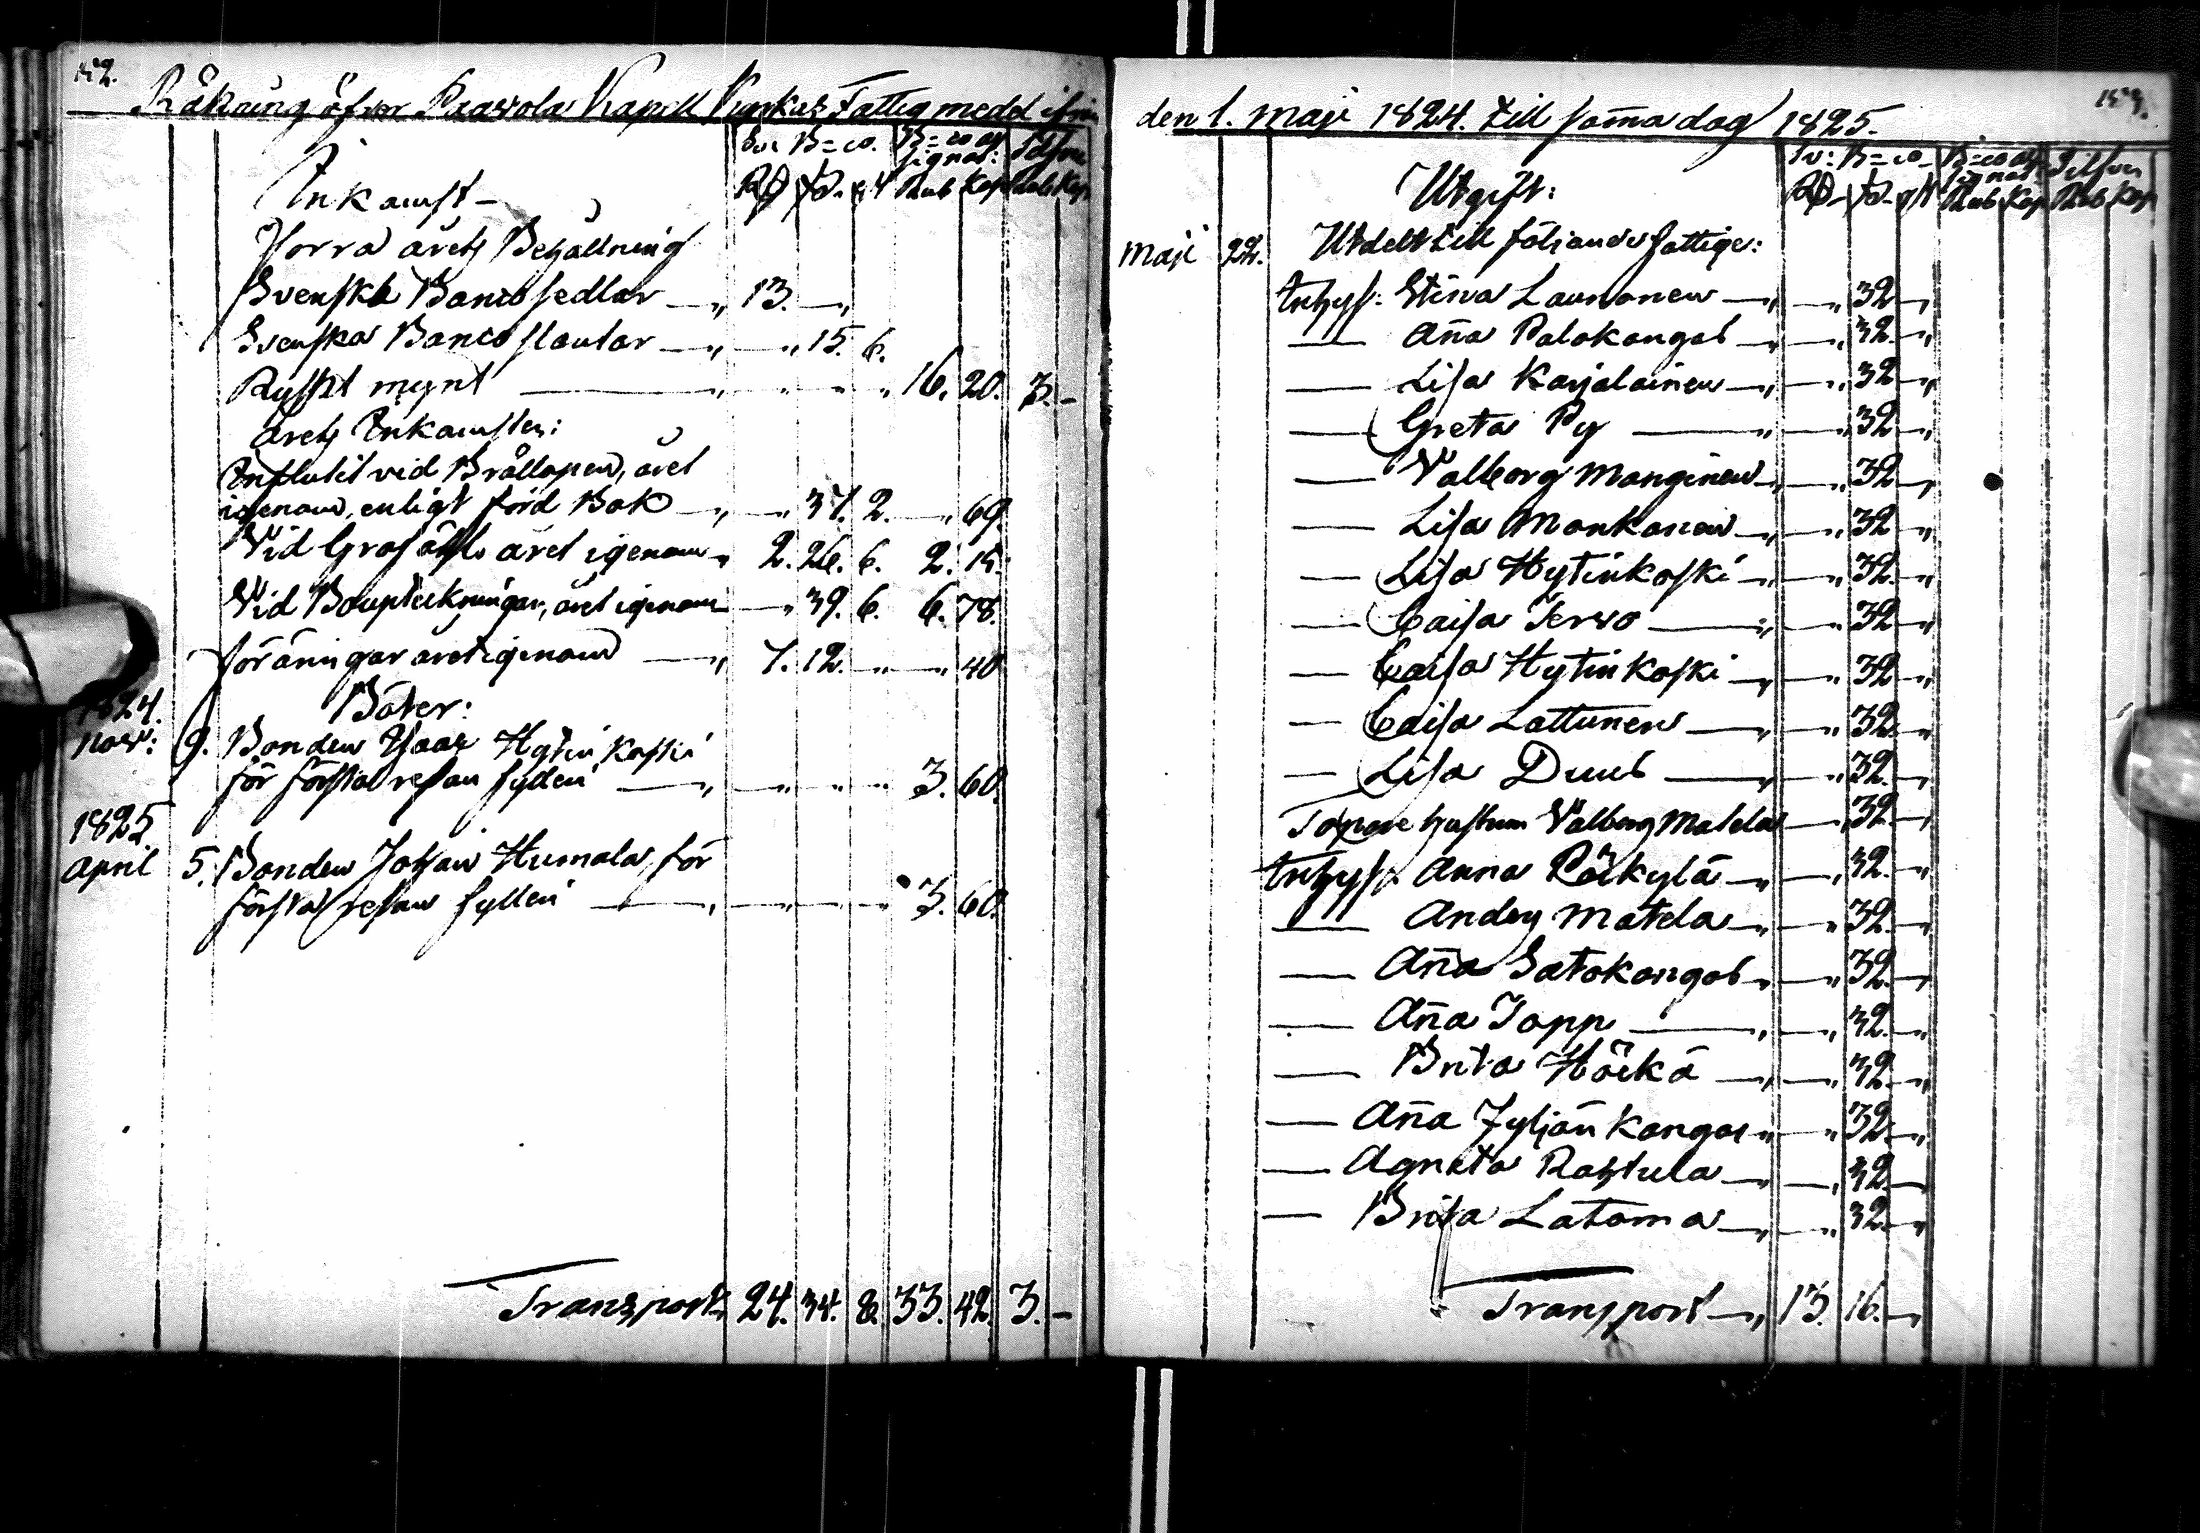 152.
Räkning öfver Paavola Kapell Kyrkas Fattig medel ifrån
Sv: B=co. B=co as signat: Silfver
Inkomst
Rd s. rst Rub Kop Rub Kop
Förra årets Behållning
Svenska Banco sedlar — „ 13. — „
Svenska Banco slantar — „ — „ 15. 6.
Ryskt mynt — „ „ „ „ 16. 20. 3. —
Årets Inkomster:
Influtit vid Bröllopen, året
igenom, enligt förd Bok — „ — „ 37. 2. — „ 69.
Vid Graföl året igenom „ 2. 26. 6. 2. 15.
Vid Bouptekningar, året igenom — „ 39. 6. 6. 78.
föräningar året igenom — „ 7. 12. „ — „ 40
Böter:
1824.
Nov: 9. Bonden Isaac Hytinkoski
för första resan fylleri — „ — „ „ „ 3. 60.
1825
April 5. Bonden Johan Humala, för
första resan fylleri — „ — „ — „ 3. 60.
Transport, 24. 34. 8. 33. 42. 3. —
153.
den 1. Maji 1824. till samma dag 1825.
Sv: B=co B=co as signat Silfver
Utgift:
Rd s. rst Rub Kop Rub Kop
Maji 24. Utdelt till följande fattige:
Inhys: Stina Launonen — „ — „ 32 — „
— Aña Palokangas — „ — „ 32 — „
— Lisa Karjalainen — „ — „ 32 — „
— Greta Py — „ — „ 32 — „
— Valborg Manginen — „ — „ 32 — „
— Lisa Monkanen — „ — „ 32 — „
— Lisa Hytinkoski — „ — „ 32 — „
— Caisa Tervo — „ — „ 32 — „
— Caisa Hytinkoski — „ — „ 32 — „
— Caisa Lattunen — „ — „ 32 — „
— Lisa Duus — „ — „ 32 — „
Torpare hustrun Valborg Matela — „ 32. — „
Inhys: Anna Päkylä — „ — „ 32. — „
— Anders Matela — „ — „ 32. — „
— Aña Satokangas — „ — „ 32. — „
— Aña Topp — „ — „ 32. — „
— Brita Höikä — „ — „ 32. — „
— Aña Jyljänkangas „ — „ 32. — „
— Agneta Rahtula — „ — „ 32. — „
— Brita Latoma — „ — „ 32. — „
Transport — „ 13. 16. — „